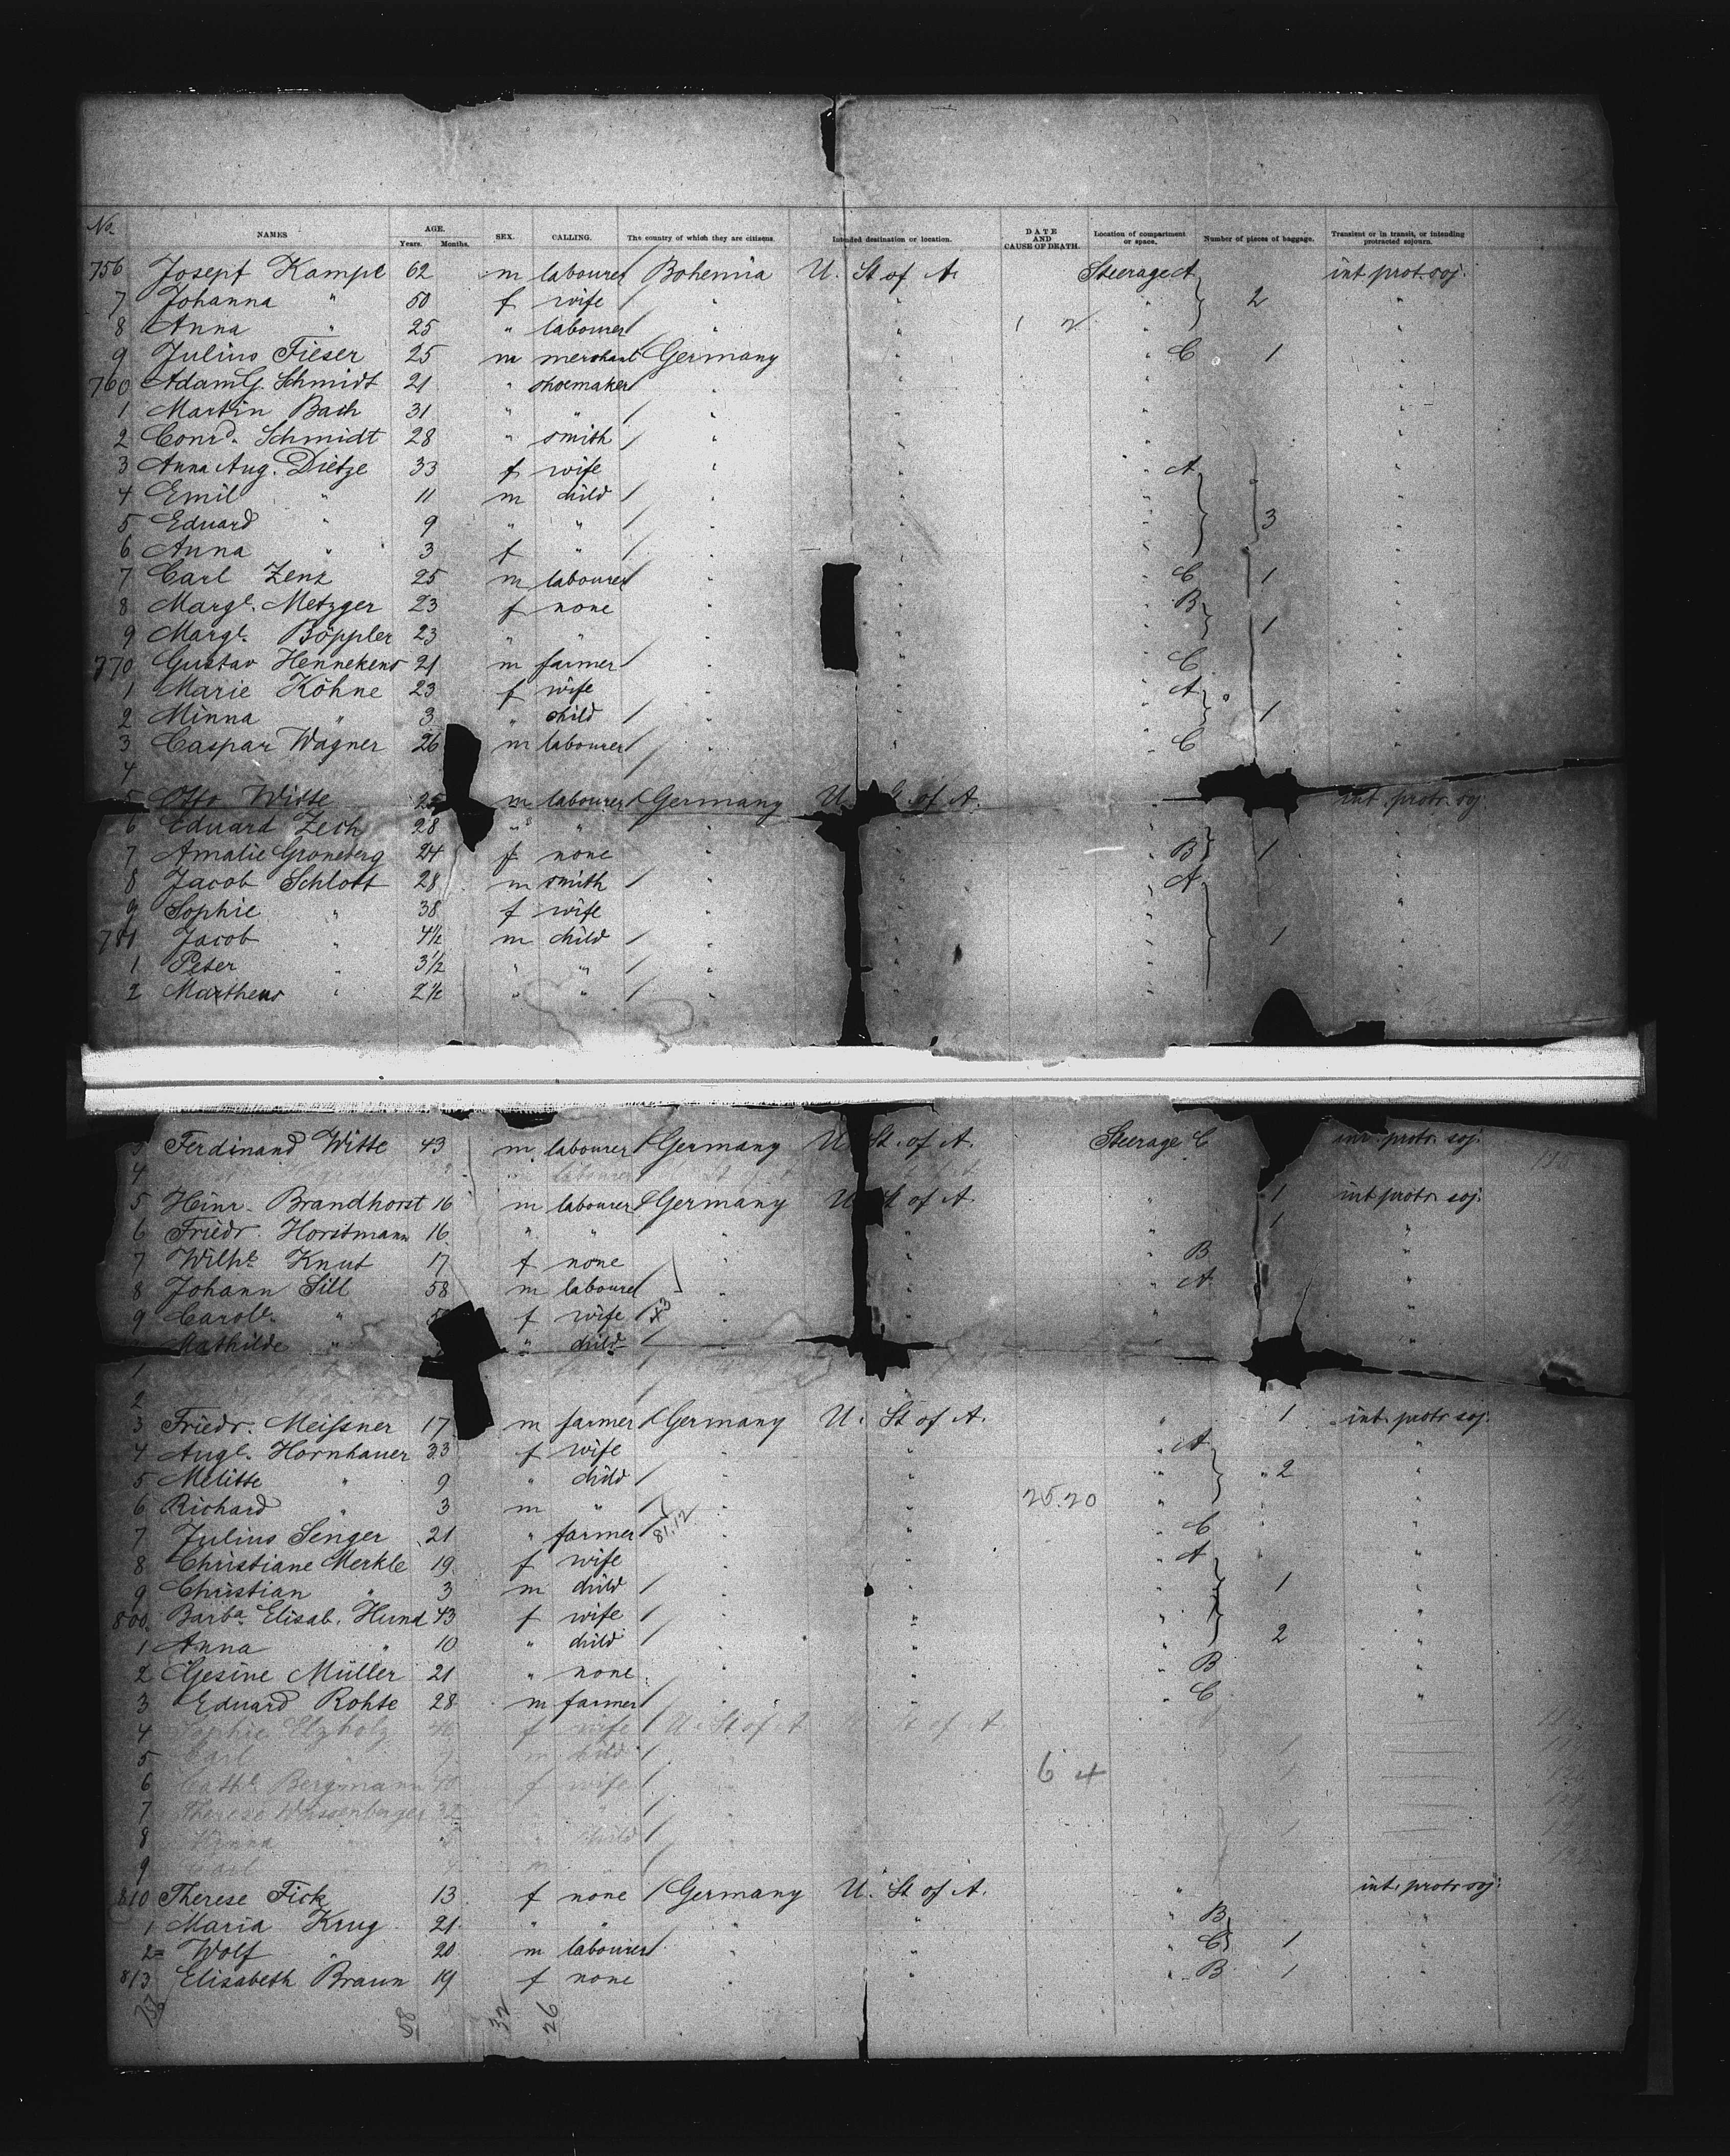 No. NAMES AGE. Years. Months. SEX. CALLING. The country of which they are citizens. Intended destination or location. DATE AND CAUSE OF DEATH. Location of compartment or space. Number of pieces of baggage. Transient or in transit, or intending protracted sojourn.
756 Josepf Kampe 62 m labourer / Bohemia U. St of A. Steerage A int. prot. soj.
7 Johanna " 50 f wife / " " " 2 "
8 Anna " 25 " labourer / " " 1 2 " "
9 Julius Fieser 25 m merchant Germany " " C 1 "
760 Adam G. Schmidt 21 " shoemaker / " " " "
1 Martin Bach 31 " " / " " " "
2 Conrd. Schmidt 28 " smith / " " " "
3 Anna Aug. Dietze 33 f wife " " " A "
4 Emil " 11 m child / " " " "
5 Eduard " 9 " " / " " " 3 "
6 Anna " 3 f " / " " " "
7 Carl Zenz 25 m labourer / " " " C 1 "
8 Margt. Metzger 23 f none " " " B "
9 Margt. Böppler 23 " " / " " " 1 "
770 Gustav Hennekens 21 m farmer / " " " C "
1 Marie Köhne 23 f wife " " " A "
2 Minna " 3 " child / " " " 1 "
3 Caspar Wagner 26 m labourer / " " " C "
4
5 Otto Witte 25 m labourer / Germany U. of A. int. protr. soj.
6 Eduard Zech 28 " " / " " " "
7 Amalie Groneberg 24 f none " " " B 1 "
8 Jacob Schlott 28 m smith / " " " A "
9 Sophie " 38 f wife " " " "
781 Jacob " 4½ m child / " " " 1 "
1 Peter " 3½ " " / " " " "
2 Martheus " 2½ " " / " " " "
3 Ferdinand Witte 43 m labourer / Germany U. St. of A. Steerage C int. protr. soj.
4 labourer
5 Heinr. Brandhorst 16 m labourer / Germany U. St of A. " 1 int protr. soj.
6 Friedr. Horstmann 16 " " " " " 1 "
7 Wilhe. Knut 17 f none " " B "
8 Johann Sill 58 m labourer / " " " A "
9 Carole. " f wife / x3 " " " "
Mathilde " " child / " "
1
2
3 Friedr. Meißner 17 m farmer / Germany U. St of A. " 1 int. protr soj.
4 Auge. Hornhauer 33 f wife " " " A "
5 Melitte " 9 " child / " " " 2 "
6 Richard " 3 m " / " " 25.20 " "
7 Julius Senger 21 " farmer / 81.12 " " " C "
8 Christiane Merkle 19 f wife " " " A "
9 Christian " 3 m child / " " " 1 "
800 Barba. Elisab. Hund 43 f wife / " " " "
1 Anna " 10 " child / " " " 2 "
2 Gesine Müller 21 " none " " " B "
3 Eduard Rohte 28 m farmer / " " " C "
4 Sophie Elzholz 46 f wife / U. St of A St of A
5 Carl " m child /
6 Cathe. Bergmann 40 f wife / 6 4
7 Therese Wassenberger 32 " " /
8 " 5 " child /
9 Carl m " /
810 Therese Fick 13 f none / Germany U. St of A. " int. protr soj.
1 Maria Krug 21 " " " " " B "
2 Wolf " 20 m labourer / " " " C 1 "
813 Elisabeth Braun 19 f none " " " B 1 "
58 32 26